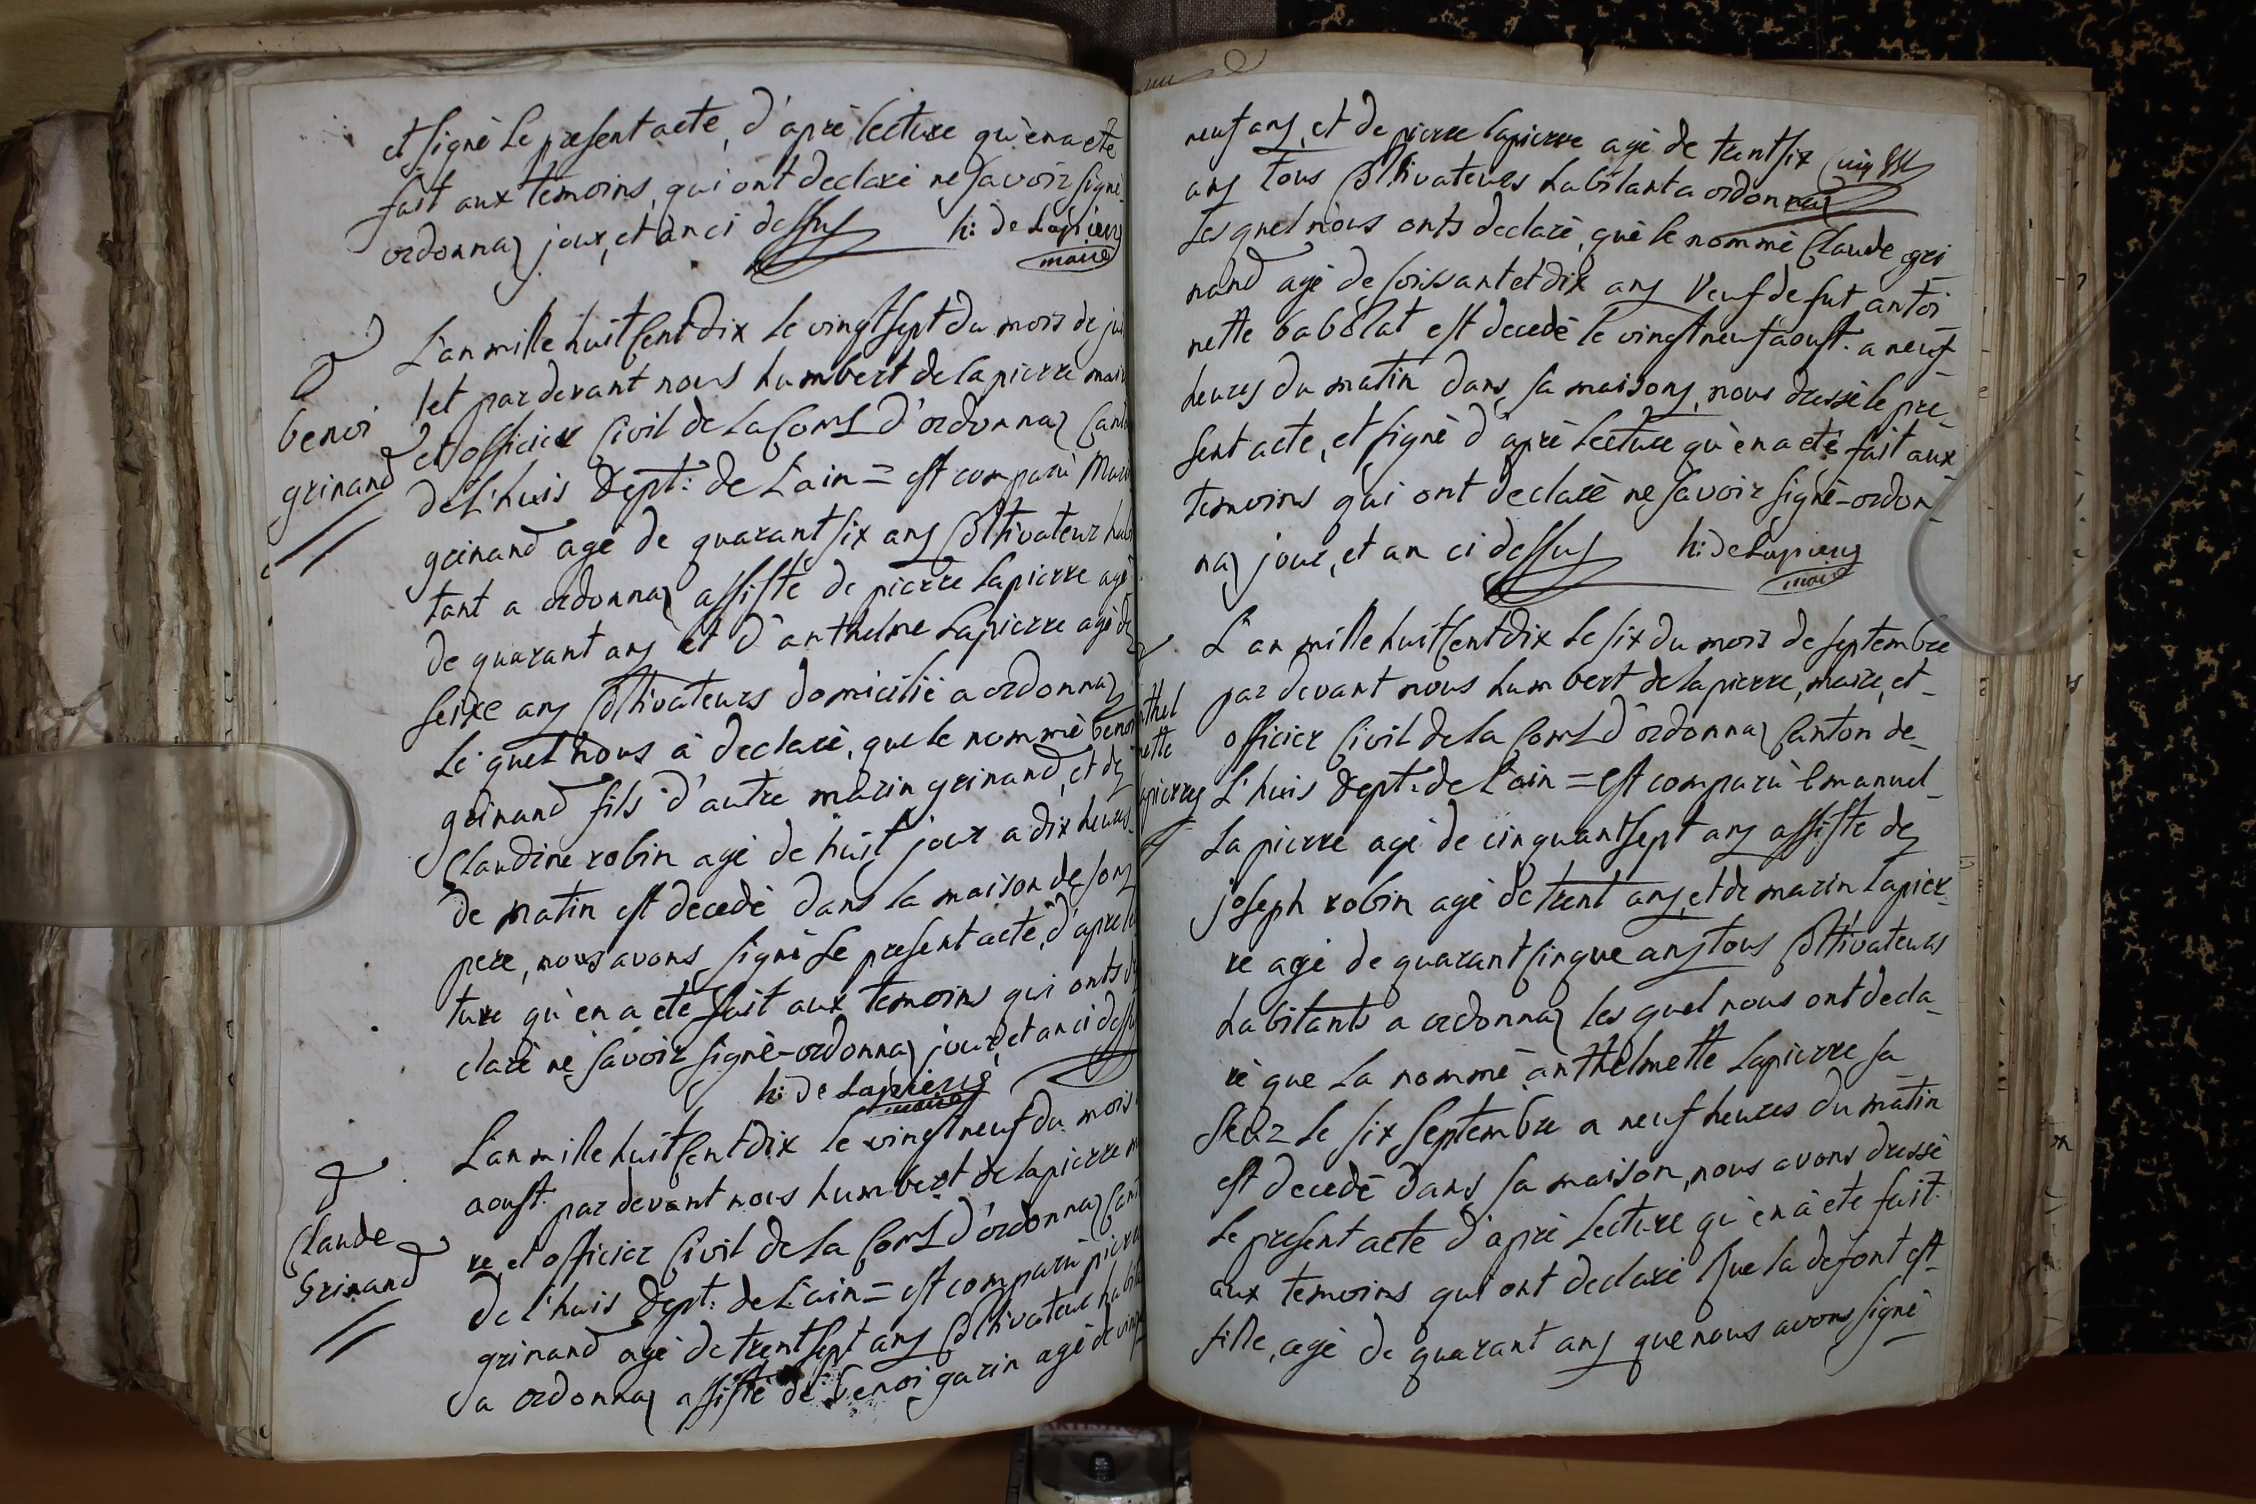 et signé le present acte, d'aprè lecture qu'en a eté
fait aux temoins, qui ont declaré ne savoir signè
ordonnaz jour, et an ci dessus h: de Lapierre
maire
L'an mille huit cent dix le vingt sept du mois de jui
let par devant nous humbert de lapierre mair
benoi
et officier civil de la Com d'ordonnaz Cant
grinand
de L'huis Dept: de L'ain = est comparu Mari
grinand agé de quarant six ans Cultivateur habi
tant a ordonnaz assisté de pierre Lapierre agé
de quarant ans et d'anthelme Lapierre agé de
seixe ans Cultivateurs domicilié a ordonnaz
Le quel nous à declaré, que le nommé benoi
grinand fils d'autre marin grinand, et de
Claudine robin agé de huit jour a dix heures
de matin est decedè dans la maison de son
pere, nous avons signé le present acte, d'apre lec
ture qu'en a eté fait aux temoins qui onts de
claré ne savoir signè - ordonnaz jour, et an ci dessus
h: de Lapierre
maire
L'an mille huit Cent dix le vingt neuf du mois
aoust. par devant nous humbert de lapierre m
Claude
Grinand
re et officier Civil de la Com d'ordonnaz Cant
de l'huis Dept: de L'ain = est comparu pierre
grinand agé de trent sept ans Cultivateur habita
a ordonnaz assisté de benoi garin agé de vingt
neuf ans, et de pierre lapierre agé de trent six
ans tous Cultivateurs habitant a ordonnaz
Les quel nous onts declaré, què le nommè Claude gri
nand agé de soissant et dix ans Veuf de fut antoi
nette babolat est decedè le vingt neuf aoust. a neuf
heures du matin dans sa maisons, nous dressè le pre
sent acte, et signé d'aprè Lecture qu'en a eté fait aux
temoins qui ont declarè ne savoir signè - ordon
naz jour, et an ci dessus h: de Lapierre
maire
L'an mille huit Cent dix le six du mois de septembre
par devant nous humbert de lapierre, maire, et
thel
officier Civil de la Com d'ordonnaz Canton de
ette
L'huis Dept: de L'ain = est comparu Emanuel
apierre
Lapierre agé de cinquant sept ans assisté de
joseph robin agé de trent ans, et de marin lapier
re agé de quarant sinque ans tous Cultivateurs
habitants a ordonnaz les quel nous ont decla
ré que La nommé anthelmette Lapierre sa
seur le six septembre a neuf heures du matin
est decedè dans sa maison, nous avons dressè
le present acte d'aprè Lecture qu'en à eté fait
aux temoins qui ont declaré Que la defont est
fille, agé de quarant ans que nous avons signé